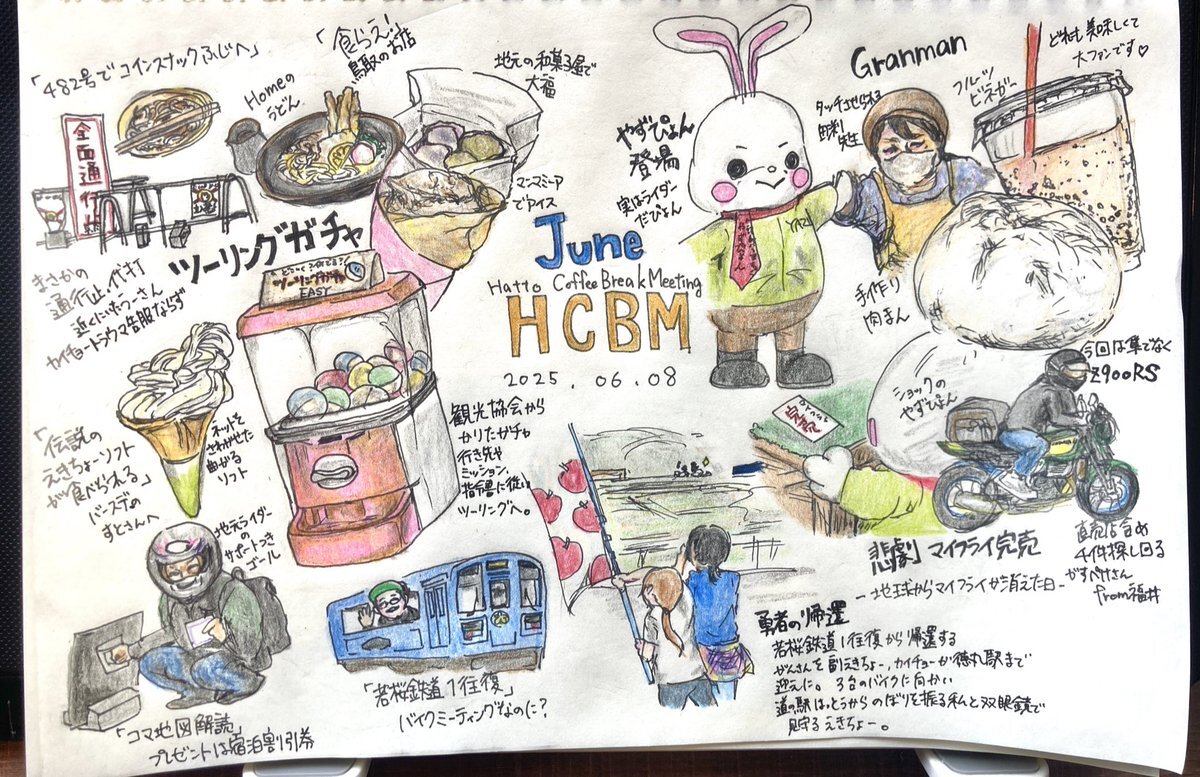 「482号でコインスナックふじへ」
全面通行止
Homeの
うどん
「食らえ!
鳥取のお店
地元の和菓子屋で
大福
マンマミーア
でアイス
まさかの
通行止、代打
近くにいた
カイチョートラウマ克服ならず
ツーリングガチャ
ツーリングガチャ
EASY
「伝説の
えきちょーソフト
が食べられる」
バースデの
すとさんへ
ネットを
さわがせた
曲がる
ソフト
観光協会から
かりたガチャ
行き先や
ミッション、
指令書に従い
ツーリングへ。
June
Hatto Coffee Break Meeting
HCBM
2025.06.08
やずぴょん
登場
実はライダー
だぴょん
YAZU
Granman
タッチさせられる
先生
フルーツ
ビネガー
どれも美味しくて
大ファンです♡
手作り
肉まん
ショックの
やずぴょん
今回は隼でなく
Z900RS
悲劇 マイフライ完売
-地球からマイフライが消えた日-
直売店含め
4件探し回る
かすべけさん
from福井
地元ライダー
の
サポートつき
ゴール
「コマ地図解読」
プレゼントは宿泊割引券
「若桜鉄道1往復」
バイクミーティングなのに?
勇者の帰還
若桜鉄道1往復から帰還する
がんさんを副えきちょー、カイチョーが徳丸駅まで
迎えに。3台のバイクに向かい
道の駅はっとうからのぼりを振る私と双眼鏡で
見守るえきちょー。